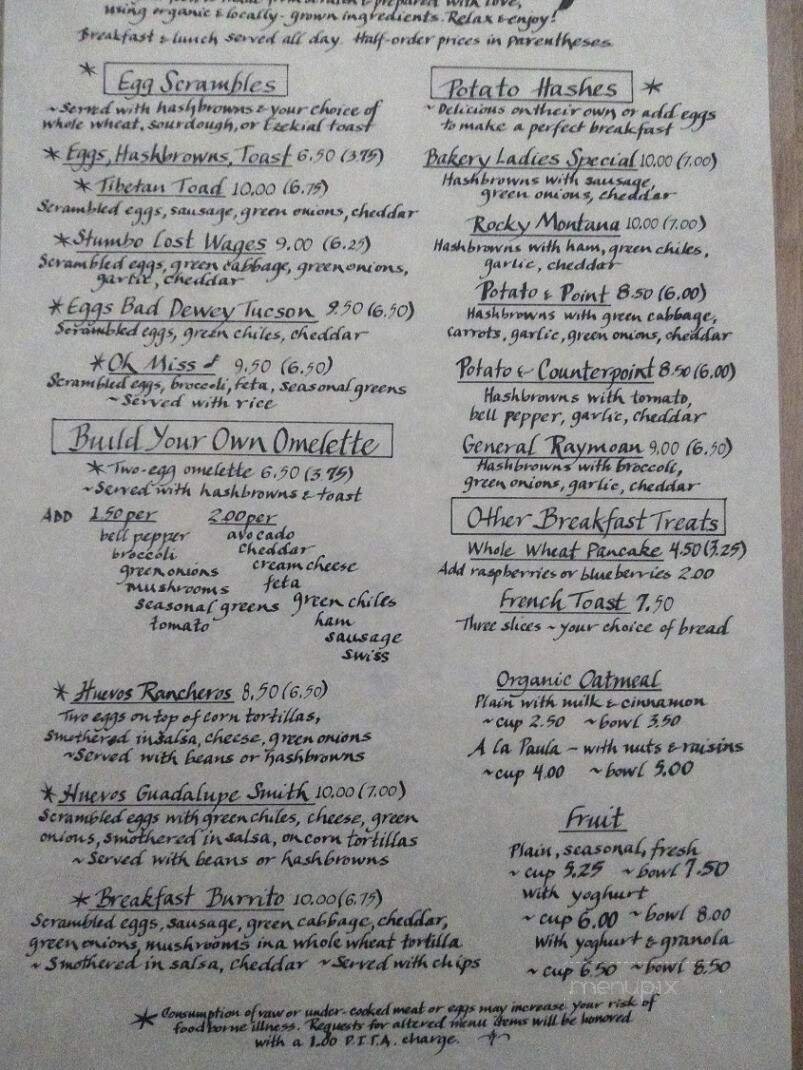 using organic & locally-grown ingredients. Relax & enjoy!
Breakfast & lunch served all day. Half-order prices in Parentheses.
* Egg Scrambles
~Served with hashbrowns & your choice of
whole wheat, sourdough, or Ezekial toast
* Eggs, Hashbrowns, Toast 6.50 (3.75)
* Tibetan Toad 10.00 (6.75)
Scrambled eggs, sausage, green onions, cheddar
* Stumbo Lost Wages 9.00 (6.25)
Scrambled eggs, green cabbage, green onions,
garlic, cheddar
* Eggs Bad Dewey Tucson 9.50 (6.50)
Scrambled eggs, green chiles, cheddar
* Oh Miss 9.50 (6.50)
Scrambled eggs, broccoli, feta, seasonal greens
~Served with rice
Build Your Own Omelette
* Two-egg omelette 6.50 (3.75)
~Served with hashbrowns & toast
ADD 1.50 per
bell pepper
broccoli
green onions
mushrooms
seasonal greens
tomato
2.00 per
avocado
cheddar
cream cheese
feta
green chiles
ham
sausage
swiss
* Huevos Rancheros 8.50 (6.50)
Two eggs on top of corn tortillas,
smothered in salsa, cheese, green onions
~Served with beans or hashbrowns
* Huevos Guadalupe Smith 10.00 (7.00)
Scrambled eggs with green chiles, cheese, green
onions, smothered in salsa, on corn tortillas
~ Served with beans or hashbrowns
* Breakfast Burrito 10.00 (6.75)
Scrambled eggs, sausage, green cabbage, cheddar,
green onions, mushrooms in a whole wheat tortilla
~ Smothered in salsa, cheddar ~ Served with chips
Potato Hashes *
~ Delicious on their own or add eggs
to make a perfect breakfast
Bakery Ladies Special 10.00 (7.00)
Hashbrowns with sausage,
green onions, cheddar
Rocky Montana 10.00 (7.00)
Hashbrowns with ham, green chiles,
garlic, cheddar
Potato & Point 8.50 (6.00)
Hashbrowns with green cabbage,
carrots, garlic, green onions, cheddar
Potato & Counterpoint 8.50 (6.00)
Hashbrowns with tomato,
bell pepper, garlic, cheddar
General Raymoan 9.00 (6.50)
Hashbrowns with broccoli,
green onions, garlic, cheddar
Other Breakfast Treats
Whole Wheat Pancake 4.50 (3.25)
Add raspberries or blueberries 2.00
French Toast 7.50
Three slices ~ your choice of bread
Organic Oatmeal
Plain with milk & cinnamon
~ cup 2.50 ~ bowl 3.50
A la Paula ~ with nuts & raisins
~ cup 4.00 ~ bowl 5.00
Fruit
Plain, seasonal, fresh
~ cup 5.25 ~ bowl 7.50
with yoghurt
~ cup 6.00 ~ bowl 8.00
with yoghurt & granola
~ cup 6.50 ~ bowl 8.50
menupix
* Consumption of raw or under-cooked meat or eggs may increase your risk of
foodborne illness. Requests for altered menu items will be honored
with a 1.00 P.I.T.A. charge.